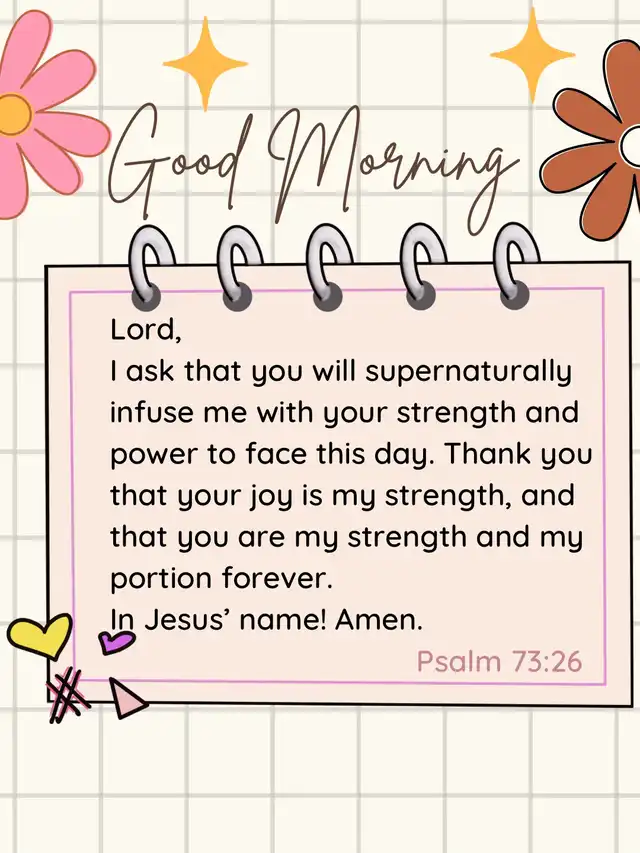 Good Morning
Lord,
I ask that you will supernaturally
infuse me with your strength and
power to face this day. Thank you
that your joy is my strength, and
that you are my strength and my
portion forever.
In Jesus’ name! Amen.
Psalm 73:26